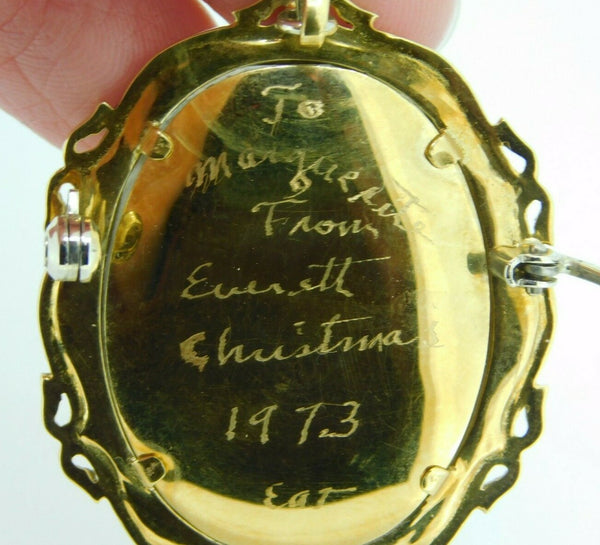 To
Marguerite
From
Everett
Christmas
1973
Eat